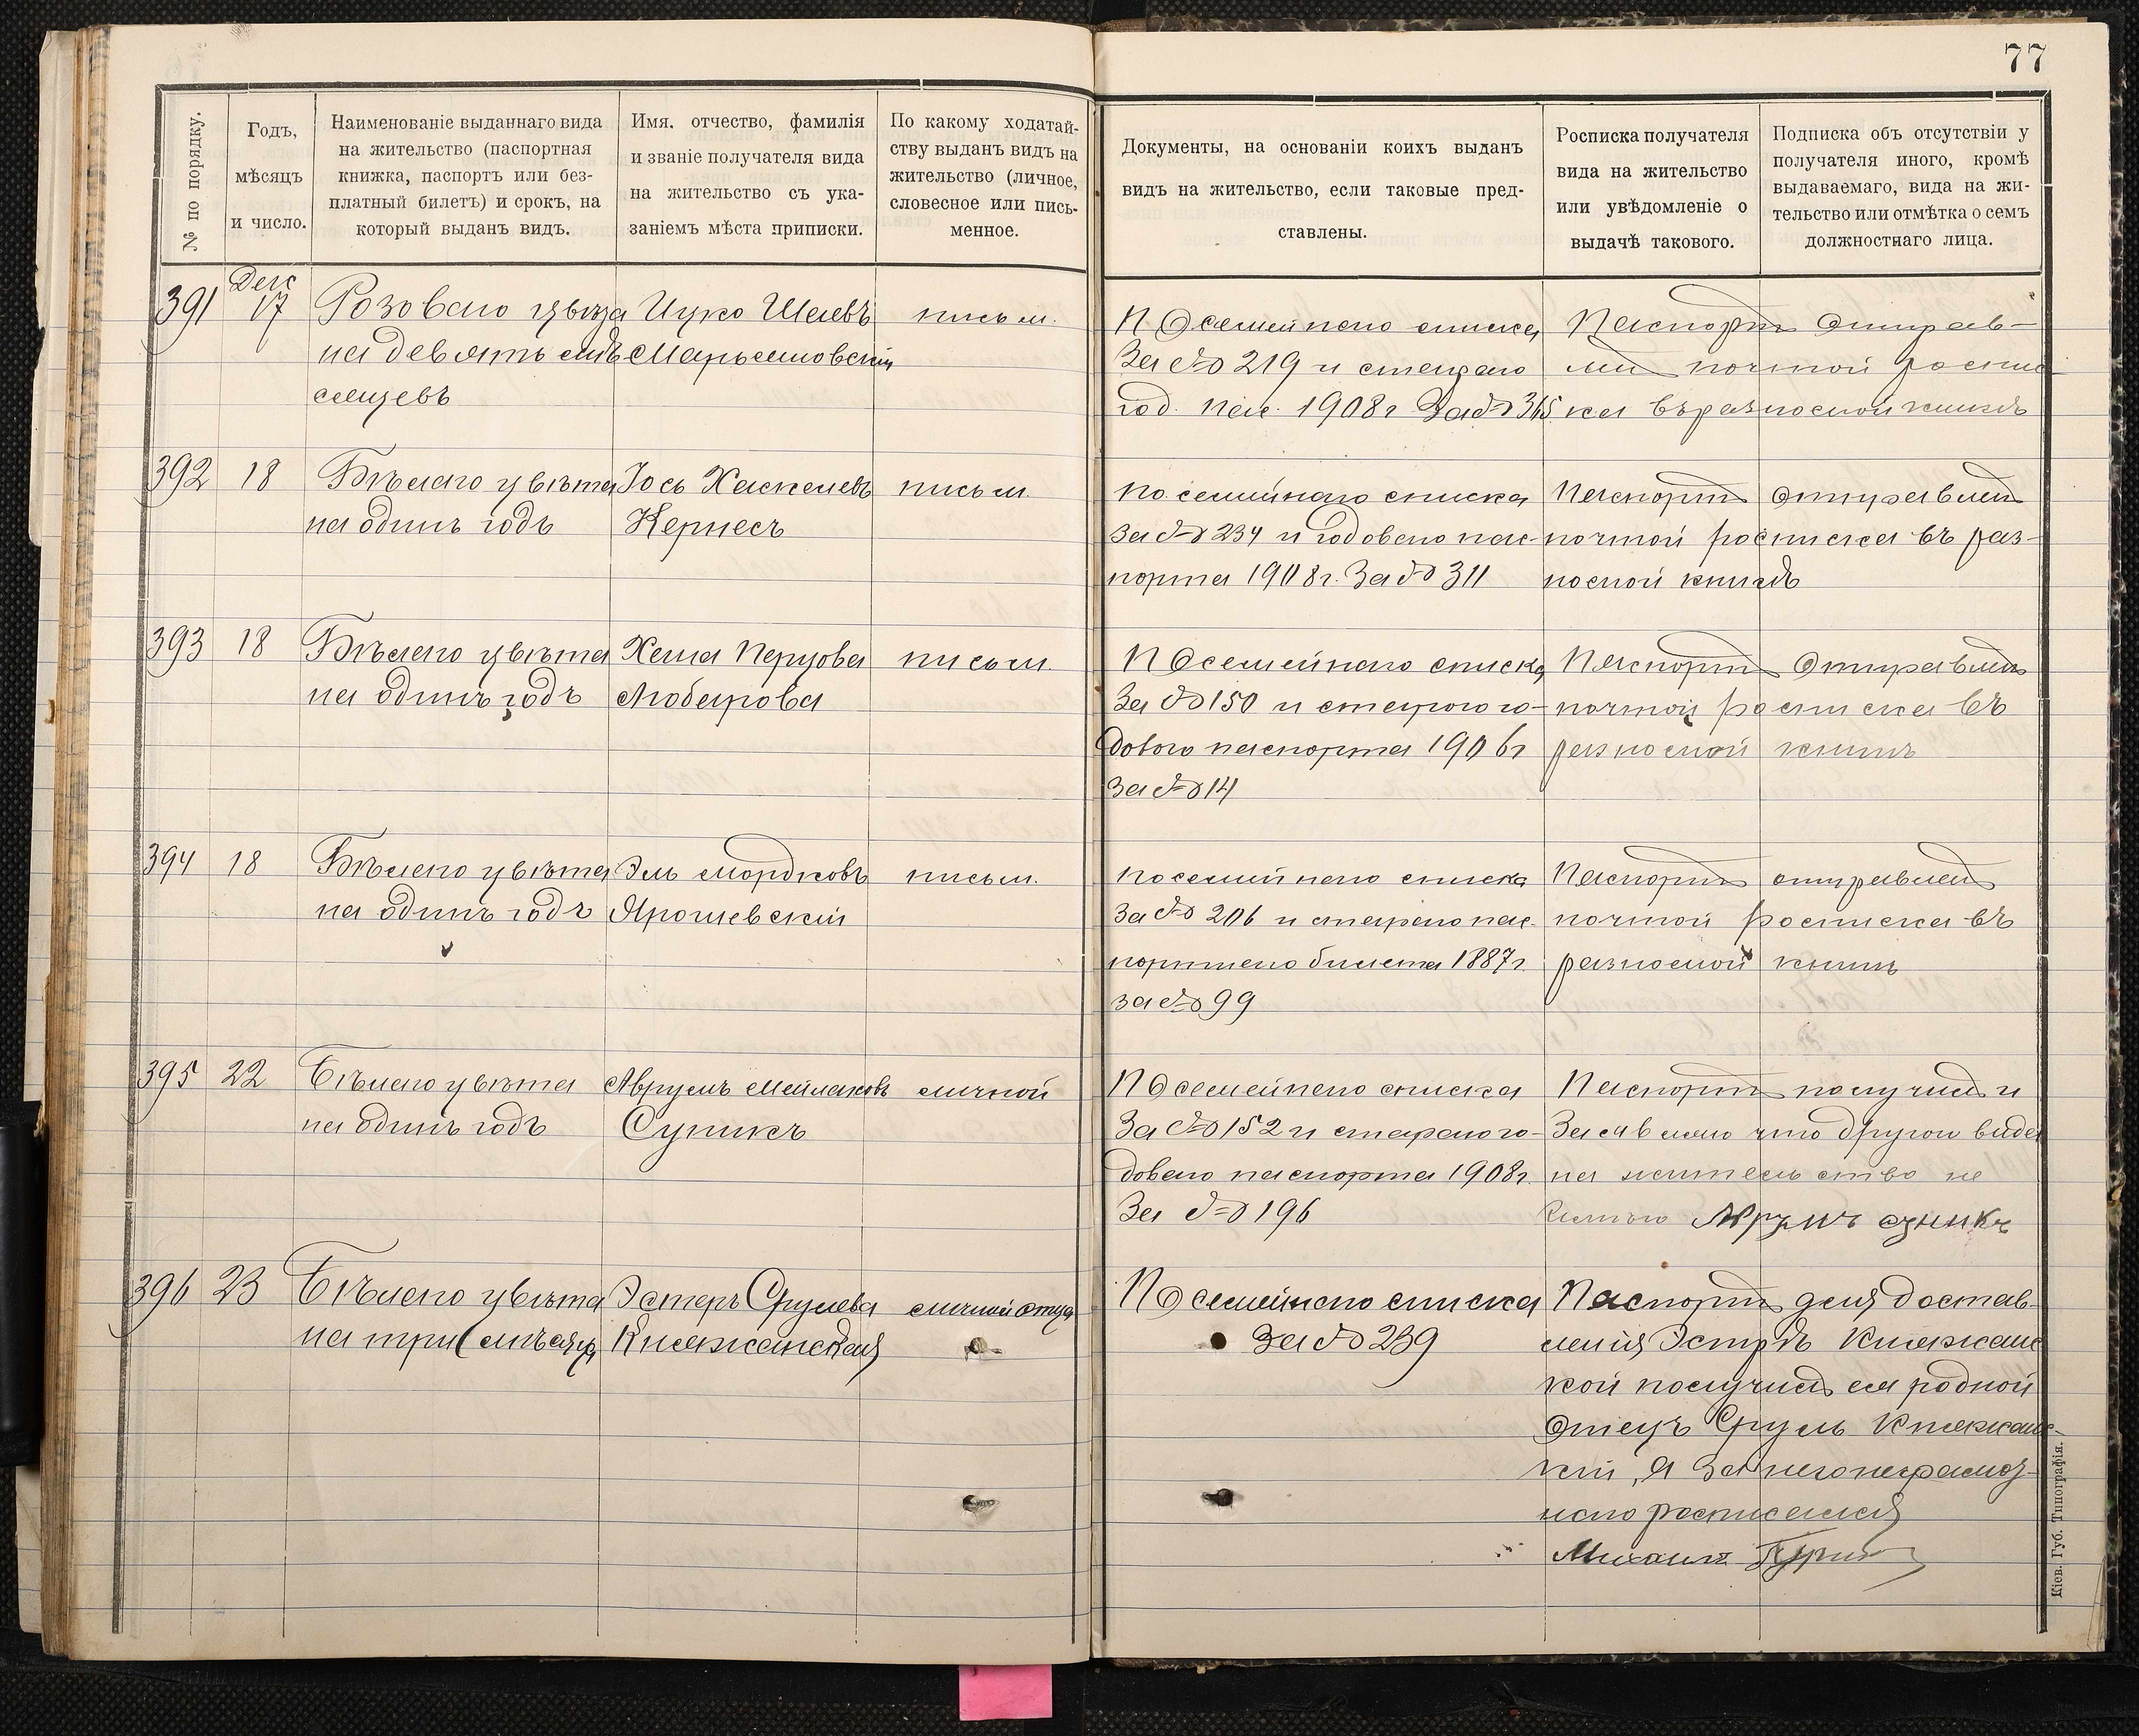 77
№ по порядку.
Годъ,
мѣсяцъ
и число.
Наименованіе выданнаго вида
на жительство (паспортная
книжка, паспортъ или без-
платный билетъ) и срокъ, на
который выданъ видъ.
Имя, отчество, фамилія
и званіе получателя вида
на жительство съ ука-
заніемъ мѣста приписки.
По какому ходатай-
ству выданъ видъ на
жительство (личное,
словесное или пись-
менное.
Документы, на основаніи коихъ выданъ
видъ на жительство, если таковые пред-
ставлены.
Росписка получателя
вида на жительство
или увѣдомленіе о
выдачѣ такового.
Подписка объ отсутствіи у
получателя иного, кромѣ
выдаваемаго, вида на жи-
тельство или отмѣтка о семъ
должностнаго лица.
Дек
391 17 Розоваго цвѣта Ицко Шаевъ письм.
на девять мѣ Марьяновскій
сяцевъ
По семейнаго списка Паспортъ отправ-
За № 219 и стараго лен почтой роспис
год. пас. 1908 г За № 365 ка въ разносной книгѣ
392 18 Бѣлаго цвѣта Іось Хаскелевъ письм.
на одинъ годъ Кернесъ
по семейнаго списка Паспортъ отправлен
за № 234 и годоваго пас- почтой росписка въ раз-
порта 1908 г. За № 311 носной книгѣ
393 18 Бѣлаго цвѣта Хана Перцова письм.
на одинъ годъ Любарова
По семейнаго списка Паспортъ отправлен
За № 150 и старого го- почтой росписка въ
дового паспорта 1906 г разносной книгѣ
За № 14
394 18 Бѣлаго цвѣта Эль Мордковъ письм.
на одинъ годъ Ярошевскій
по семейнаго списка Паспортъ отправлен
За № 206 и стараго пас- почтой росписка въ
портнаго билета 1887 г. разносной книгѣ
за № 99
395 22 Бѣлаго цвѣта Аврумъ Мейлаховъ личной
на одинъ годъ Суникъ
По семейнаго списка Паспортъ получилъ и
За № 152 и стараго го- Заявляю что другого вида
доваго паспорта 1908 г. на жительство не
За № 196 имѣю Аврумъ суникъ
396 23 Бѣлаго цвѣта Эстеръ Срулева личной отца
на три мѣсяца Княжанская
По семейнаго списка Паспортъ для достав-
За № 239 ленія Эстрѣ Княжанс
кой получилъ ея родной
Отецъ Сруль Княжанс-
кій, А за него неграмот-
наго росписался
Михаилъ
Кіев. Губ. Типографія.